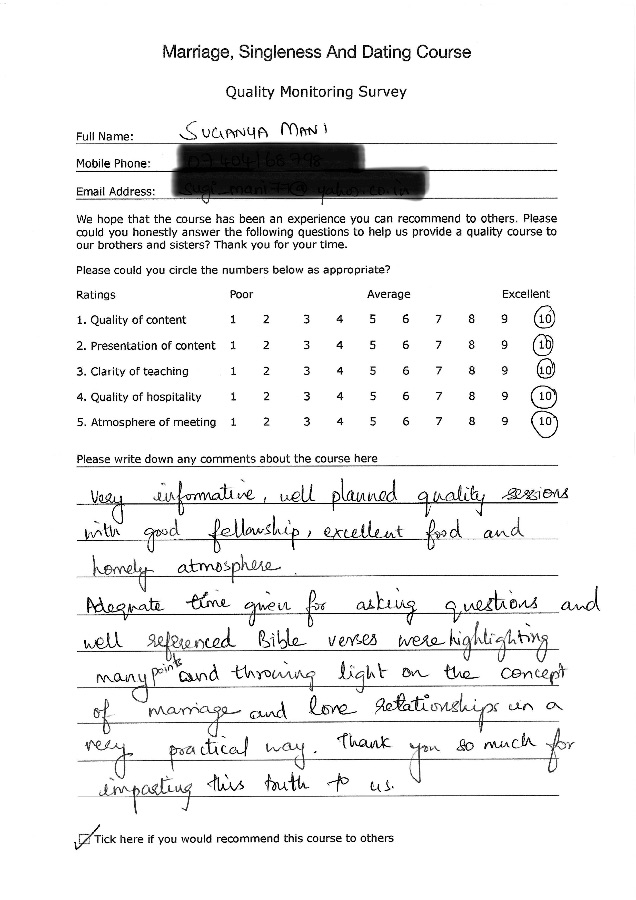 Marriage, Singleness And Dating Course
Quality Monitoring Survey
Full Name: SUGANYA MANI
Mobile Phone:
Email Address:
We hope that the course has been an experience you can recommend to others. Please
could you honestly answer the following questions to help us provide a quality course to
our brothers and sisters? Thank you for your time.
Please could you circle the numbers below as appropriate?
Ratings Poor Average Excellent
1. Quality of content 1 2 3 4 5 6 7 8 9 10
2. Presentation of content 1 2 3 4 5 6 7 8 9 10
3. Clarity of teaching 1 2 3 4 5 6 7 8 9 10
4. Quality of hospitality 1 2 3 4 5 6 7 8 9 10
5. Atmosphere of meeting 1 2 3 4 5 6 7 8 9 10
Please write down any comments about the course here
Very informative, well planned quality sessions
with good fellowship, excellent food and
homely atmosphere.
Adequate time given for asking questions and
well referenced Bible verses were highlighting
many points and throwing light on the concept
of marriage and love relationships in a
very practical way. Thank you so much for
imparting this truth to us.
Tick here if you would recommend this course to others